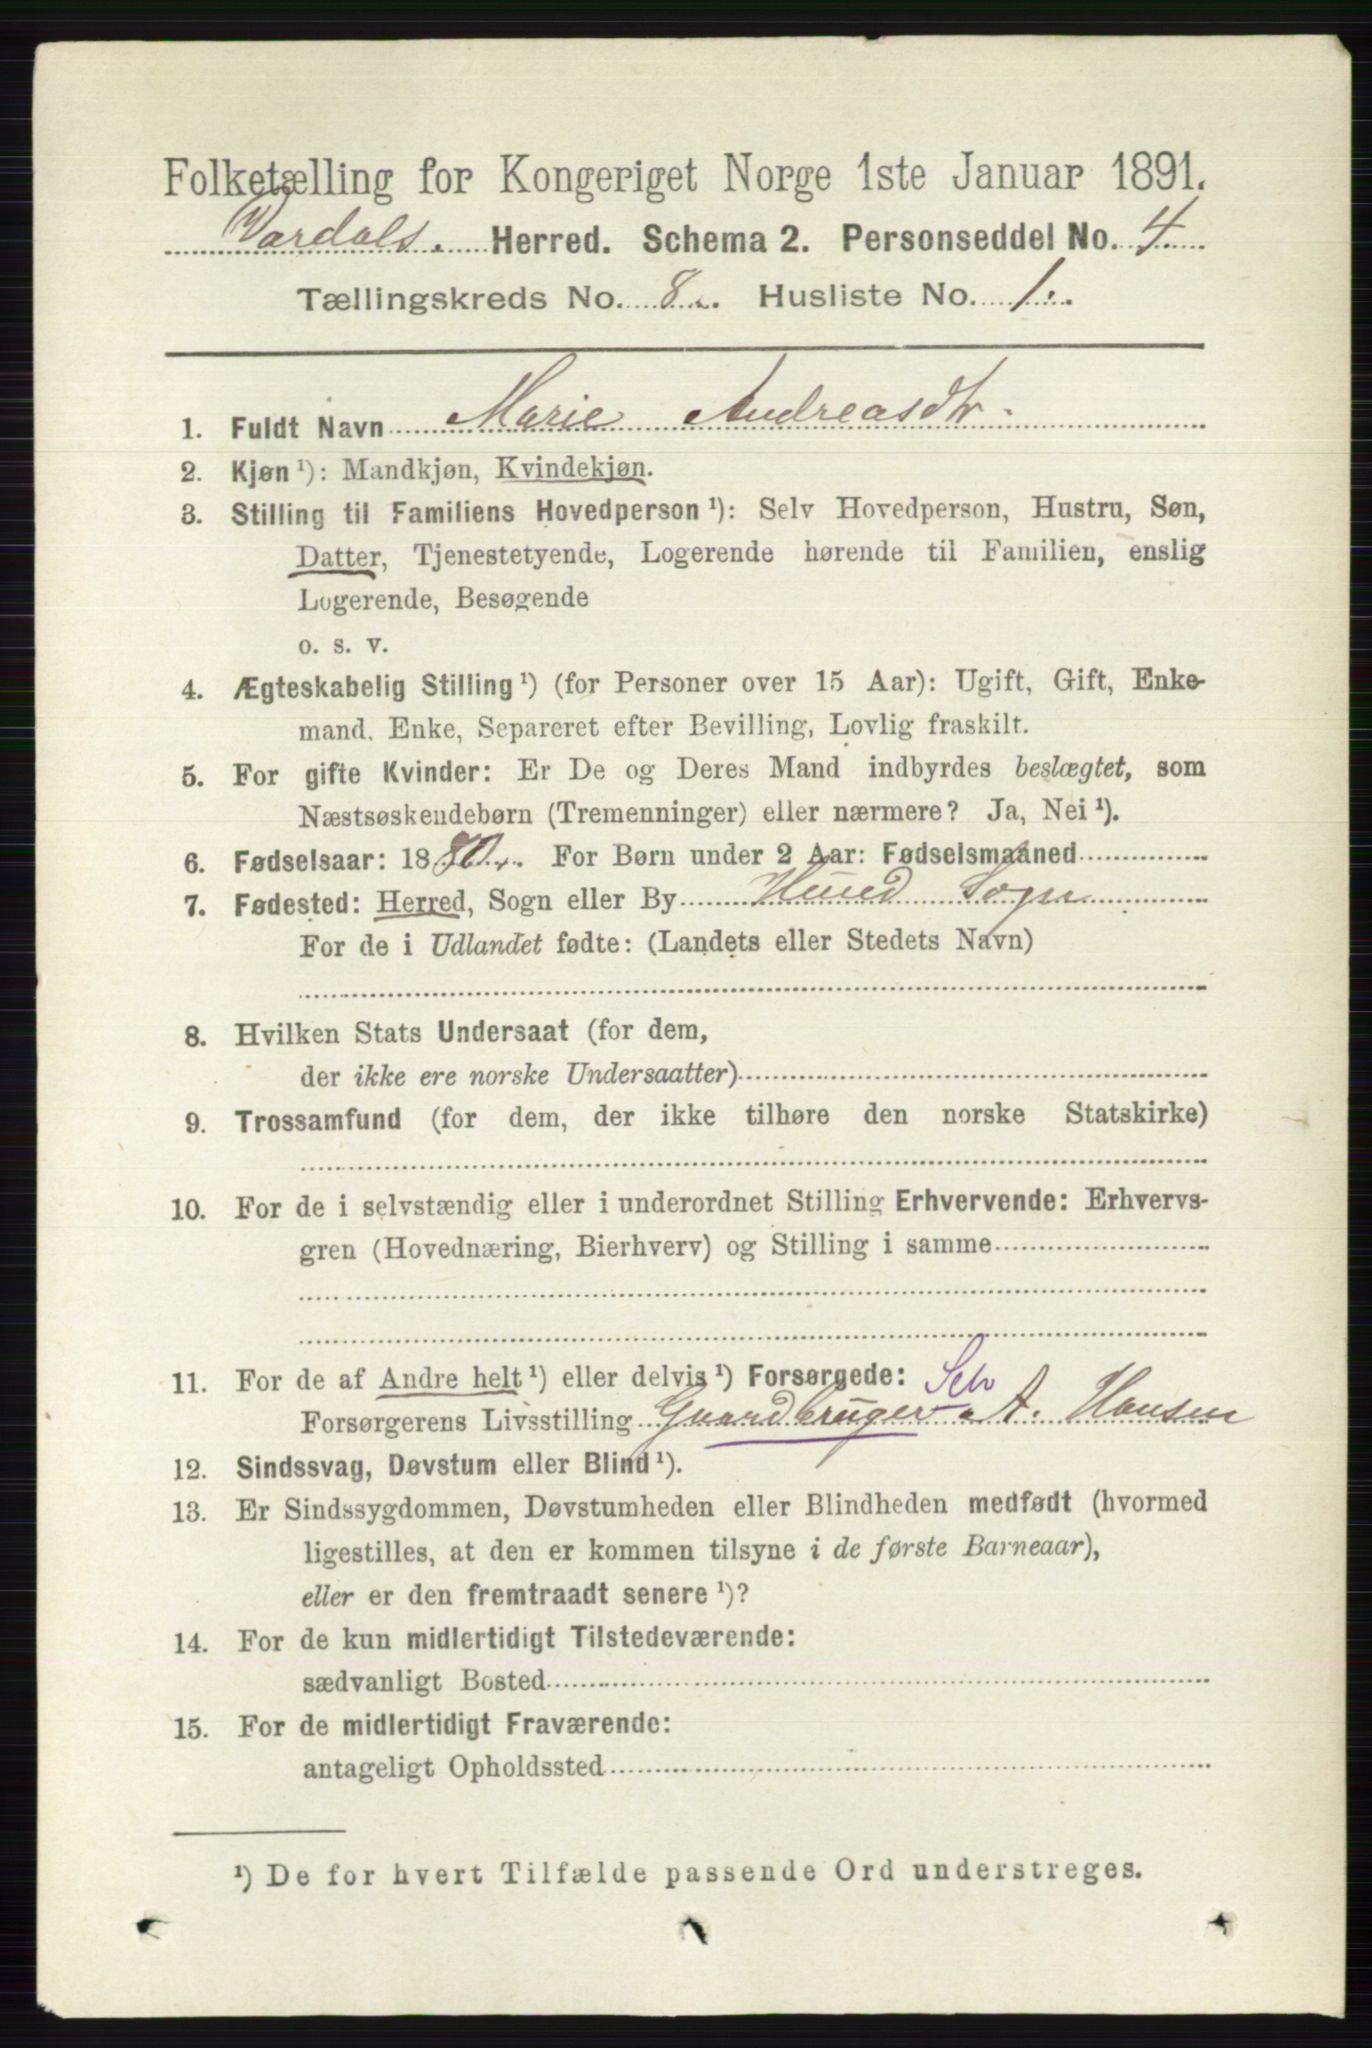 Folketælling for Kongeriget Norge 1ste Januar 1891.
Vardals. Herred. Schema 2. Personseddel No. 4
Tællingskreds No. 8. Husliste No. 1.
1. Fuldt Navn Marie Andreasdtr.
2. Kjøn ¹): Mandkjøn, Kvindekjøn.
3. Stilling til Familiens Hovedperson ¹): Selv Hovedperson, Hustru, Søn,
Datter, Tjenestetyende, Logerende hørende til Familien, enslig
Logerende, Besøgende
o. s. v.
4. Ægteskabelig Stilling ¹) (for Personer over 15 Aar): Ugift, Gift, Enke-
mand, Enke, Separeret efter Bevilling, Lovlig fraskilt.
5. For gifte Kvinder: Er De og Deres Mand indbyrdes beslægtet, som
Næstsøskendebørn (Tremenninger) eller nærmere? Ja, Nei ¹).
6. Fødselsaar: 1880. For Børn under 2 Aar: Fødselsmaaned
7. Fødested: Herred, Sogn eller By Hund Sogn
For de i Udlandet fødte: (Landets eller Stedets Navn)
8. Hvilken Stats Undersaat (for dem,
der ikke ere norske Undersaatter)
9. Trossamfund (for dem, der ikke tilhøre den norske Statskirke)
10. For de i selvstændig eller i underordnet Stilling Erhvervende: Erhvervs-
gren (Hovednæring, Bierhverv) og Stilling i samme
11. For de af Andre helt ¹) eller delvis ¹) Forsørgede: Selv
Forsørgerens Livsstilling Gaardbruger A. Hansen
12. Sindssvag, Døvstum eller Blind ¹).
13. Er Sindssygdommen, Døvstumheden eller Blindheden medfødt (hvormed
ligestilles, at den er kommen tilsyne i de første Barneaar),
eller er den fremtraadt senere ¹)?
14. For de kun midlertidigt Tilstedeværende:
sædvanligt Bosted
15. For de midlertidigt Fraværende:
antageligt Opholdssted
¹) De for hvert Tilfælde passende Ord understreges.